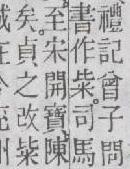 禮記曾子問
書作柴。司馬
至宋開寶陳
矣。貞之改柴